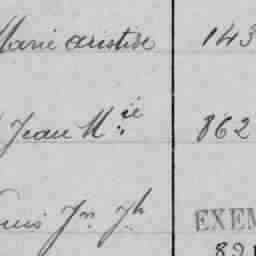 Marie aristide 143
Jean M.ie 862
Jn. Jh. EXEM